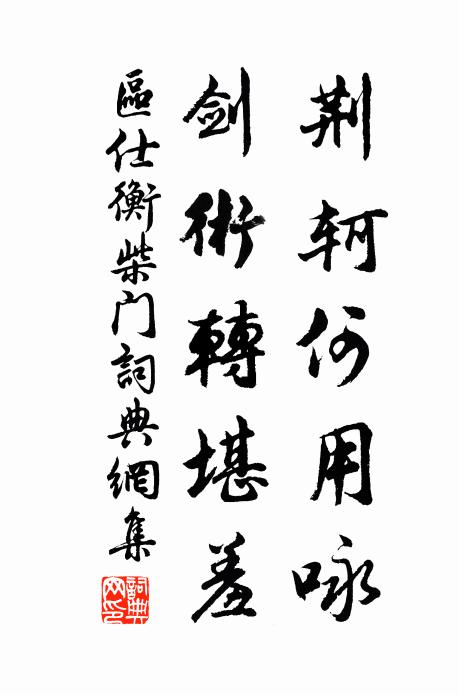 荆轲何用咏
剑術轉堪羞
區仕衡柴门詞典網集
詞典網印